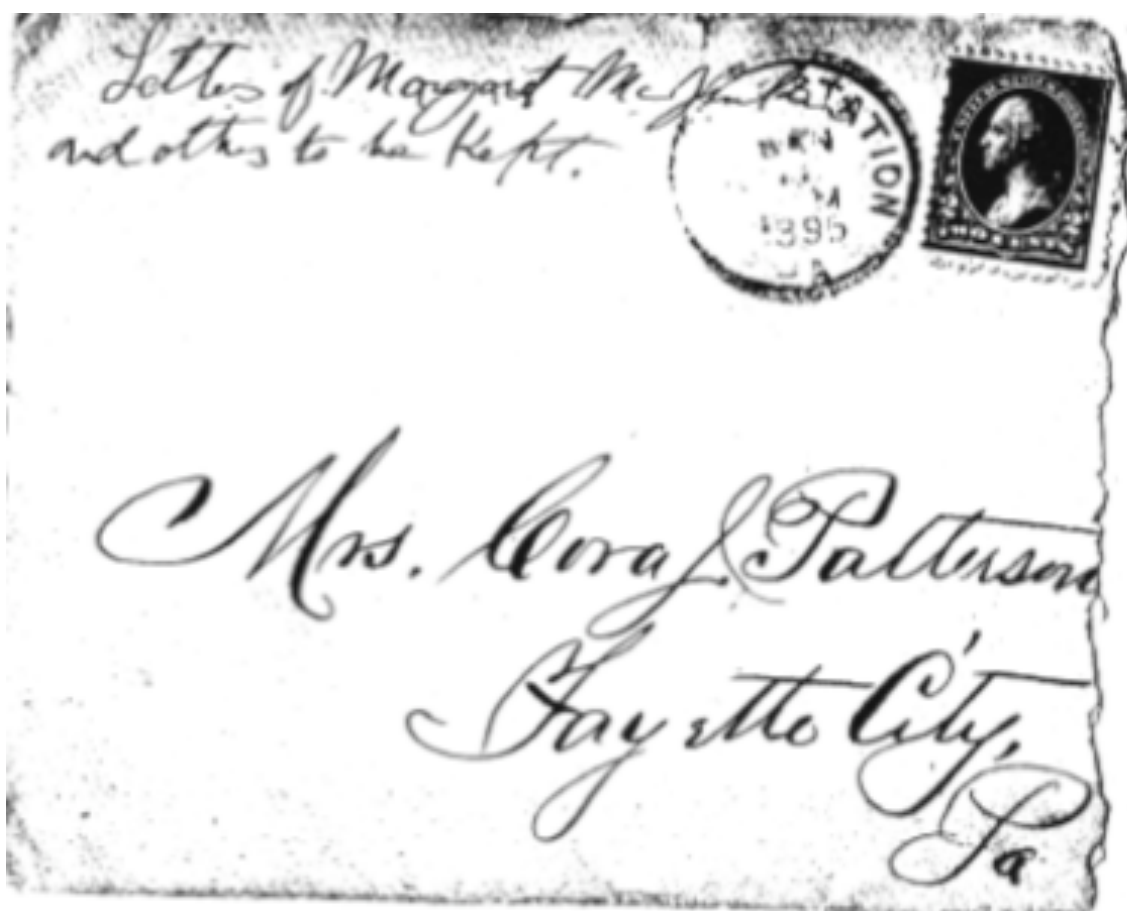 Letters of Margaret Mc
and others to be kept.
STATION
1895
TWO CENTS
Mrs. Cora J. Patterson
Fayette City,
Pa